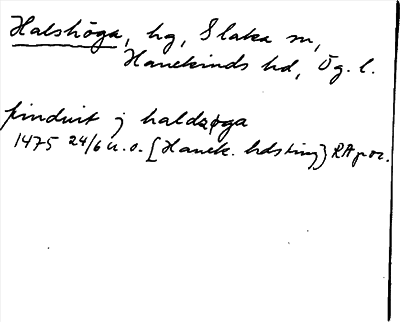 Halshöga, hg, Slaka sn,
Hanekinds hd, Ög. l.
finduit j haldzøga
1475 24/6 u.o. [Hanek. hdsting] RA p or.